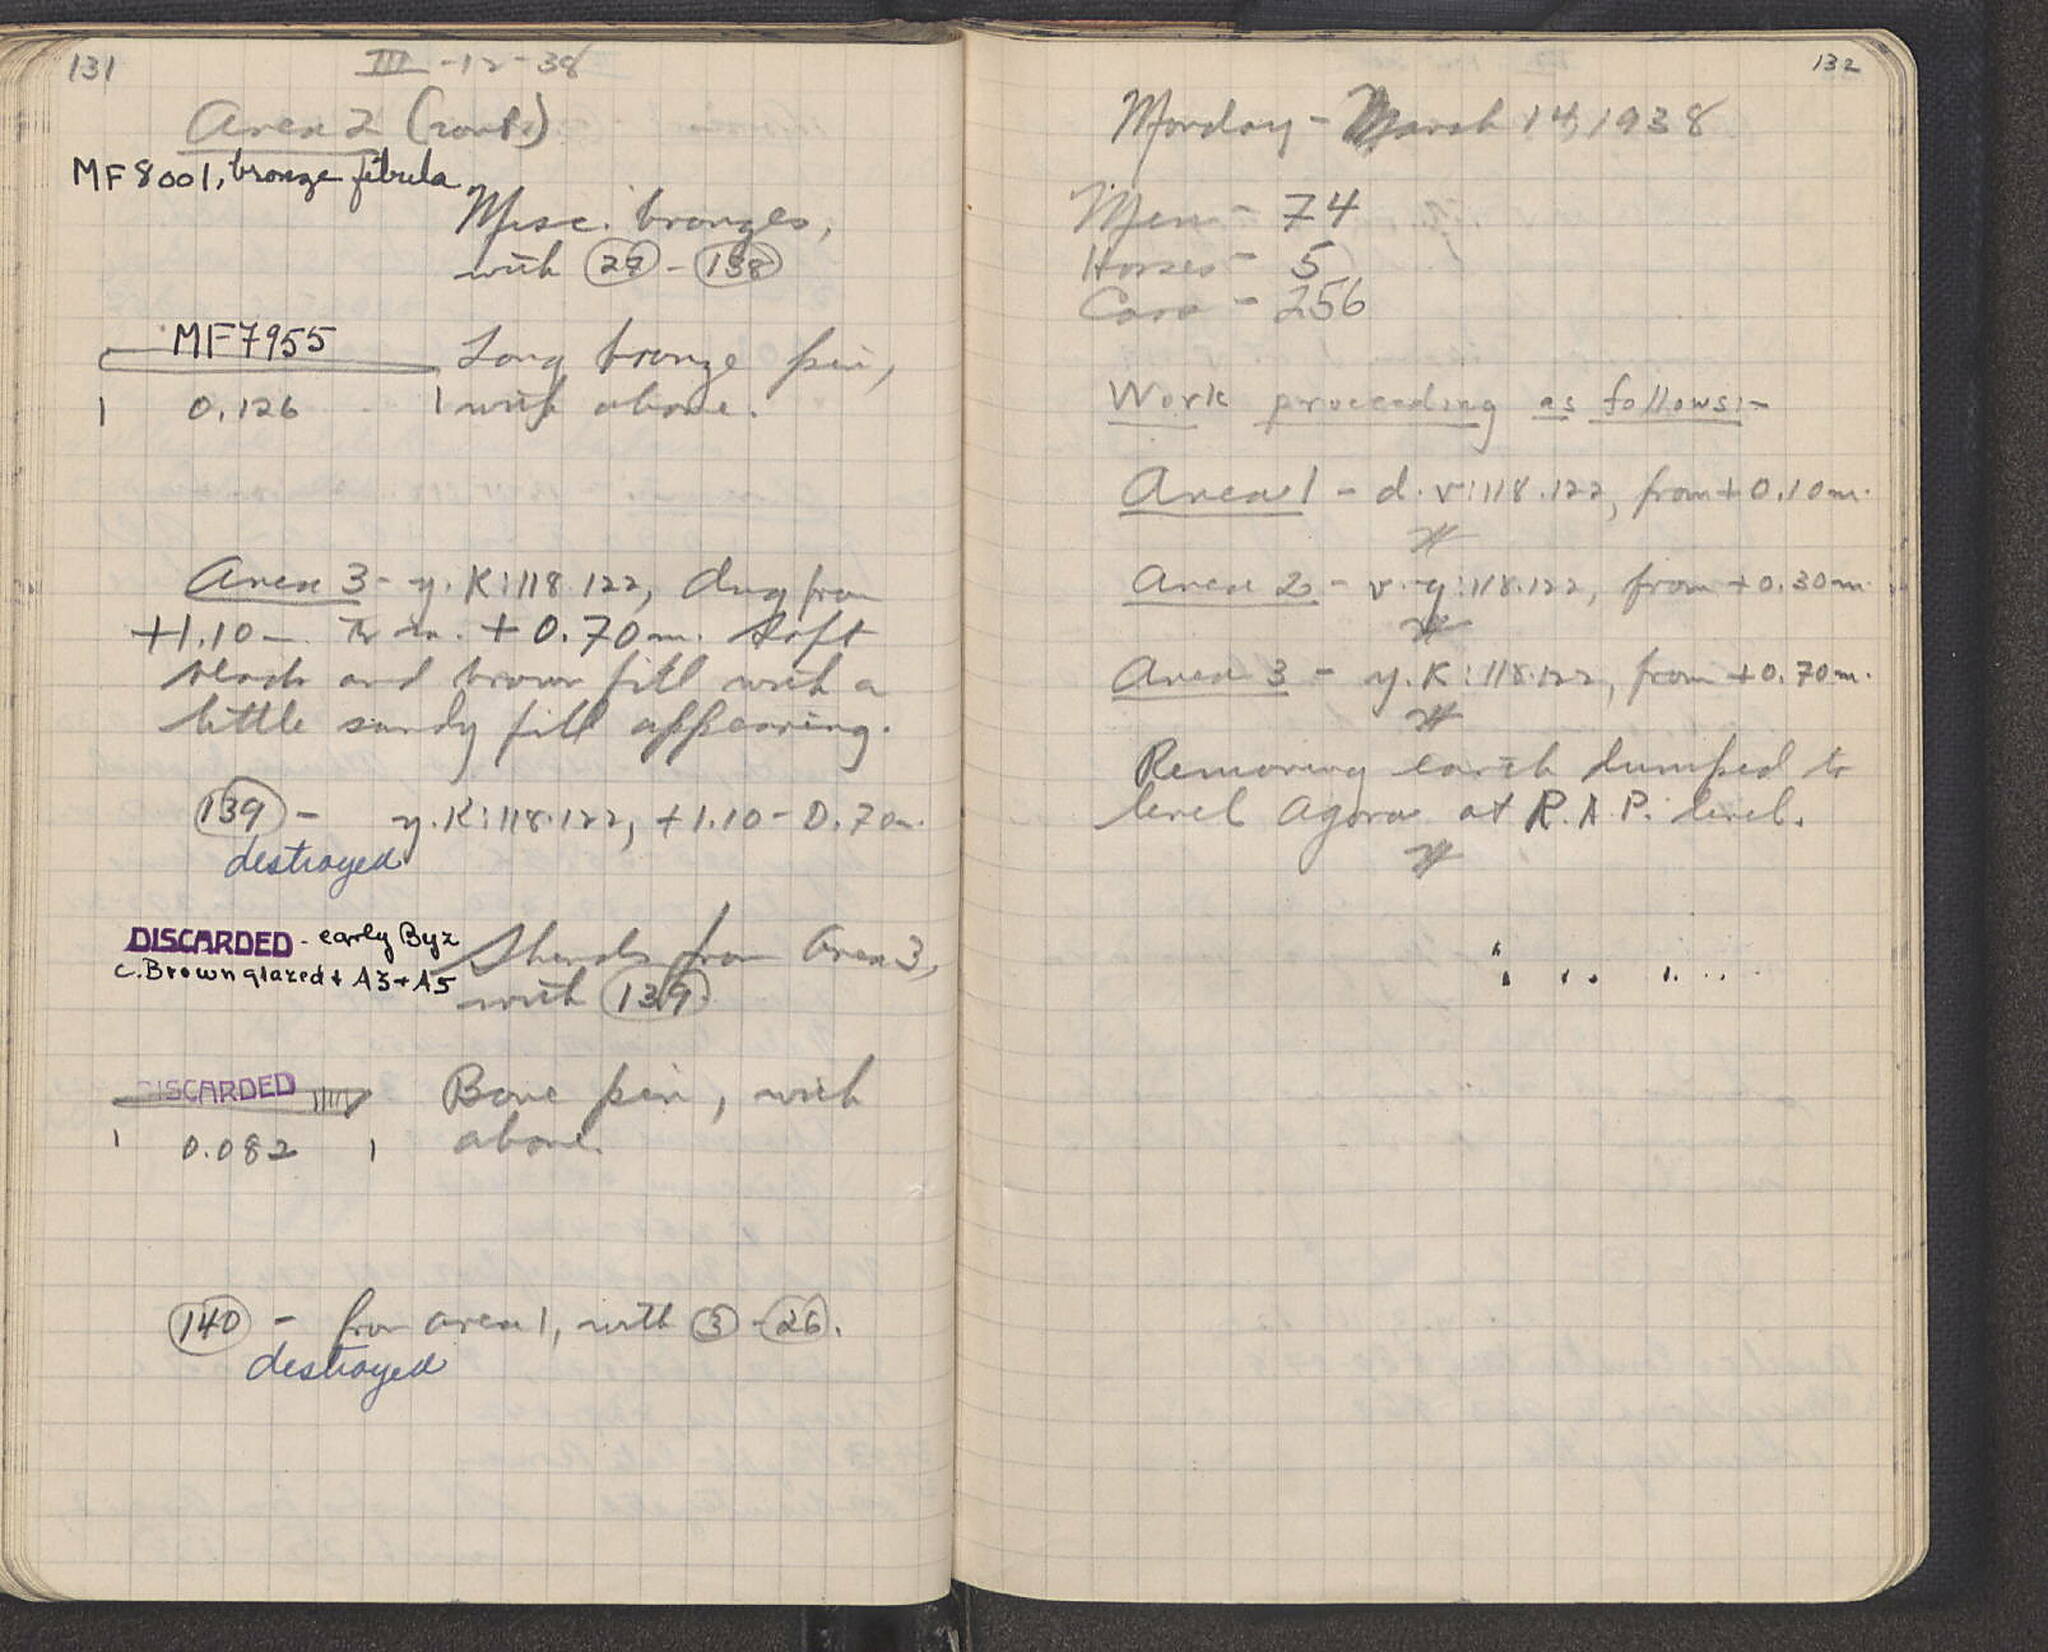 131
III -12-38
Area 2 (cont.)
MF 8001, bronze fibula
Misc. bronzes,
with 27 - 138
MF7955
Long bronze pin,
0.126
with above.
Area 3 - y.K:118.122, dug from
+1.10 - to +0.70m. Soft
black and brown fill with a
little sandy fill appearing.
139 - y.K:118.122, +1.10 - 0.70m.
destroyed
DISCARDED - early Byz
c. Brown glazed + A3 + A5
Sherds from Area 3,
with 139.
DISCARDED
Bone pin, with
above.
0.082
140 - from area 1, with 3 - 26.
destroyed
132
Monday - March 14, 1938
Men - 74
Horses - 5
Cars - 256
Work proceeding as follows:-
Area 1 - d.v:118.122, from +0.10m.
Area 2 - v.y:118.122, from +0.30m.
Area 3 - y.K:118.122, from +0.70m.
Removing earth dumped to
level Agora at R.A.P. level.